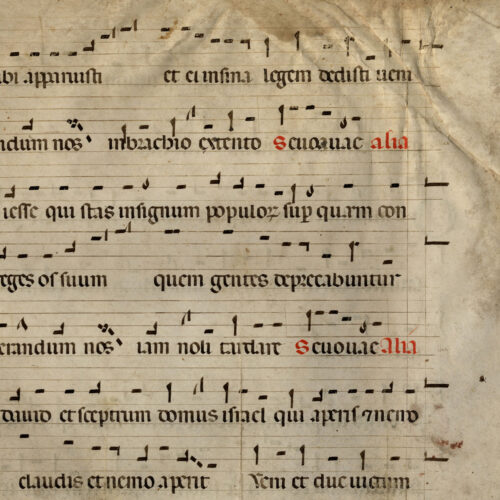 ibi apparuisti et ei insina legem dedisti veni
ndum nos inbrachio extento Seuouae alia
iesse qui stas insignum populoꝝ suꝑ quem con
eges os suum quem gentes deprecabuntur
erandum nos iam noli tardare Seuouae Alia
dauid et sceptrum domus israel qui aperis ⁊ nemo
claudis et nemo aperit Veni et duc uictum